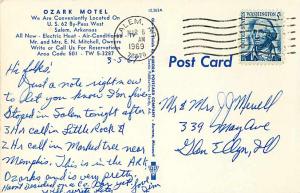 OZARK MOTEL
We Are Conveniently Located On
U. S. 62 By-Pass West
Salem, Arkansas
All New - Electric Heat - Air-Conditioned
Mr. and Mrs. E. N. Mitchell, Owners
Write or Call Us For Reservations
Area Code 501 TW 5-3287
SALEM,
MAR 6
1969
WASHINGTON
Post Card
3-5-
Hi folks!
Just a note right now
to let you know I'm fine.
Stopped in Salem tonight after
3 Hrs call in Little Rock &
2 Hrs call in Marked tree near
Memphis. This is in the ARK
Ozarks and is very pretty.
Mr & Mrs J. Merrell
339 May Ave
Glen Ellyn, Ill